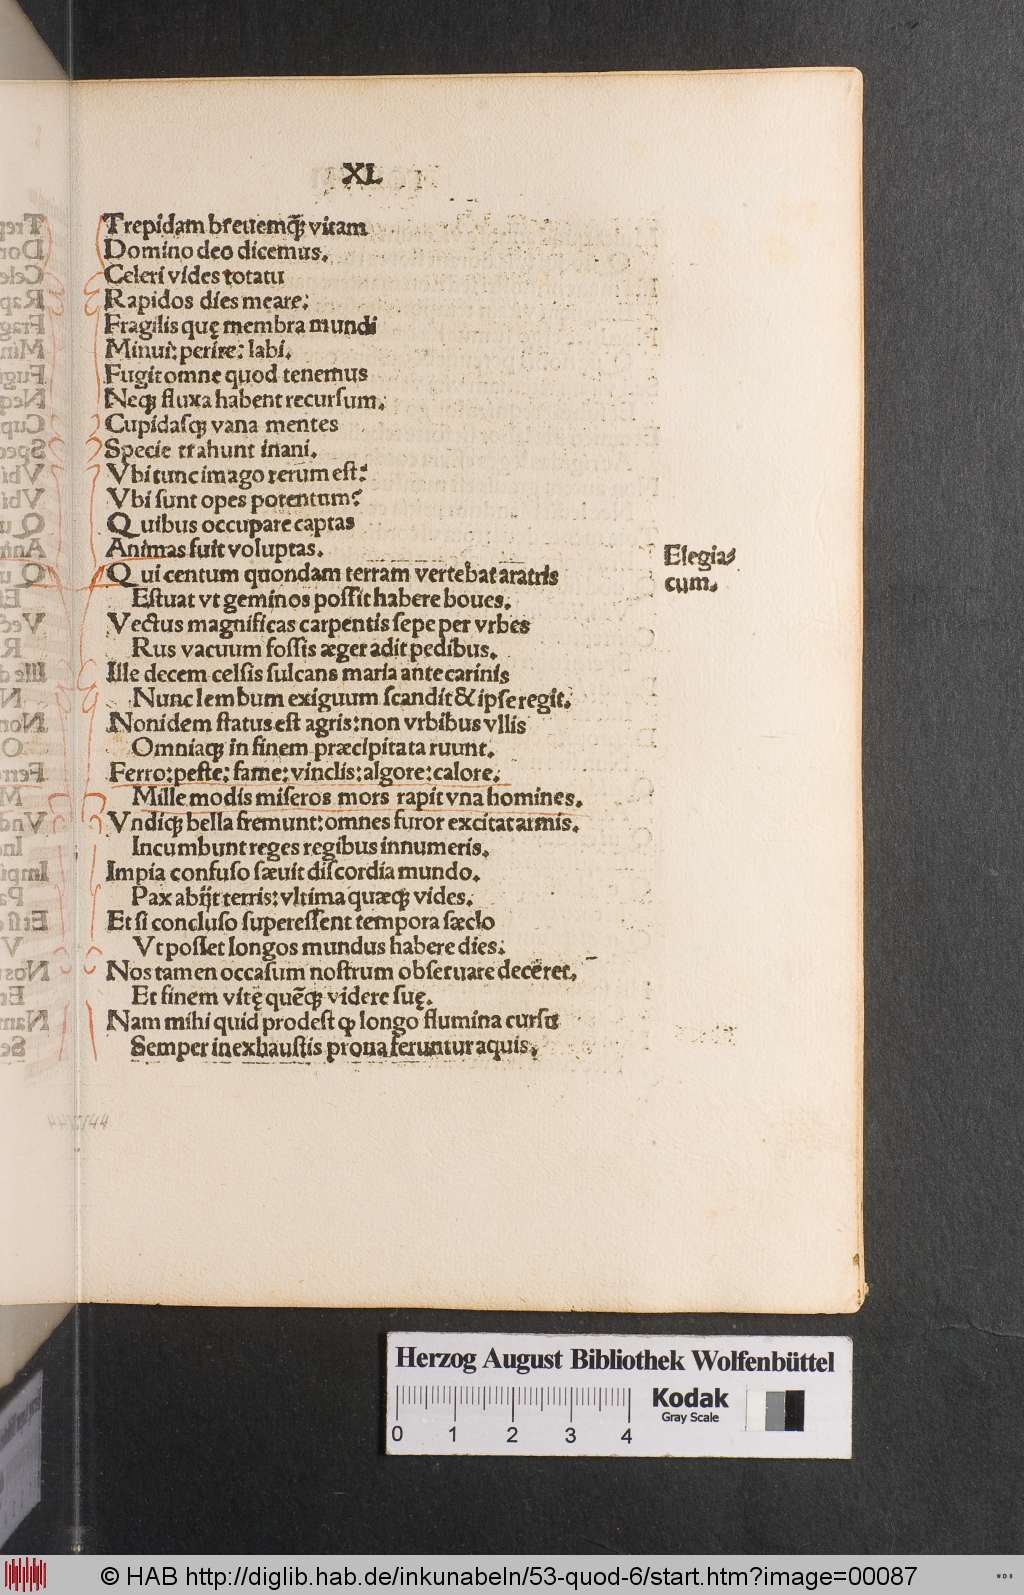 XL
Trepidam breuemq̃ vitam
Domino deo dicemus.
Celeri vides rotatu
Rapidos dies meare:
Fragilis quę membra mundi
Minui: perire: labi.
Fugit omne quod tenemus
Neqꝫ fluxa habent recursum.
Cupidasqꝫ vana mentes
Specie trahunt inani.
Vbi tunc imago rerum est?
Vbi sunt opes potentum?
Quibus occupare captas
Animas fuit voluptas.
Qui centum quondam terram vertebat aratris
Estuat vt geminos possit habere boues.
Vectus magnificas carpentis sepe per vrbes
Rus vacuum fossis æger adit pedibus.
Ille decem celsis sulcans maria ante carinis
Nunc lembum exiguum scandit & ipse regit.
Non idem status est agris: non vrbibus vllis
Omniaqꝫ in finem præcipitata ruunt.
Ferro: peste: fame: vinclis: algore: calore.
Mille modis miseros mors rapit vna homines.
Vndiqꝫ bella fremunt: omnes furor excitat armis.
Incumbunt reges regibus innumeris.
Impia confuso sæuit discordia mundo.
Pax abijt terris: vltima quæqꝫ vides.
Et si concluso superessent tempora sæclo
Vt posset longos mundus habere dies:
Nos tamen occasum nostrum obseruare deceret.
Et finem vitę quēqꝫ videre suę.
Nam mihi quid prodest ꝙ longo flumina cursu
Semper inexhaustis prona feruntur aquis.
Elegia⸗
cum.
Herzog August Bibliothek Wolfenbüttel
Kodak
Gray Scale
0 1 2 3 4
© HAB http://diglib.hab.de/inkunabeln/53-quod-6/start.htm?image=00087